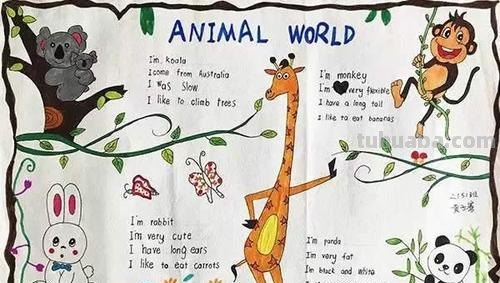 ANIMAL WORLD
I'm koala
I come from Australia
I was slow
I like to climb trees
I'm monkey
I'm very flexible
I have a long tail
I like to eat bananas
tuhuaba.com
I'm rabbit
I'm very cute
I have long ears
I like to eat carrots
I'm panda
I'm very fat
I'm black and white